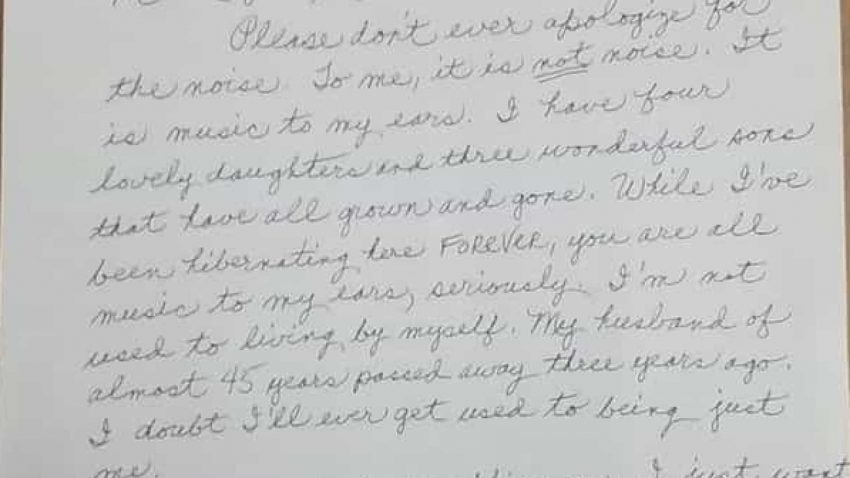 Please don't ever apologize for
the noise. To me, it is not noise. It
is music to my ears. I have four
lovely daughters and three wonderful sons
that have all grown and gone. While I've
been hibernating here FOREVER, you are all
music to my ears, seriously. I'm not
used to living by myself. My husband of
almost 45 years passed away three years ago.
I doubt I'll ever get used to being just
me.
I just want